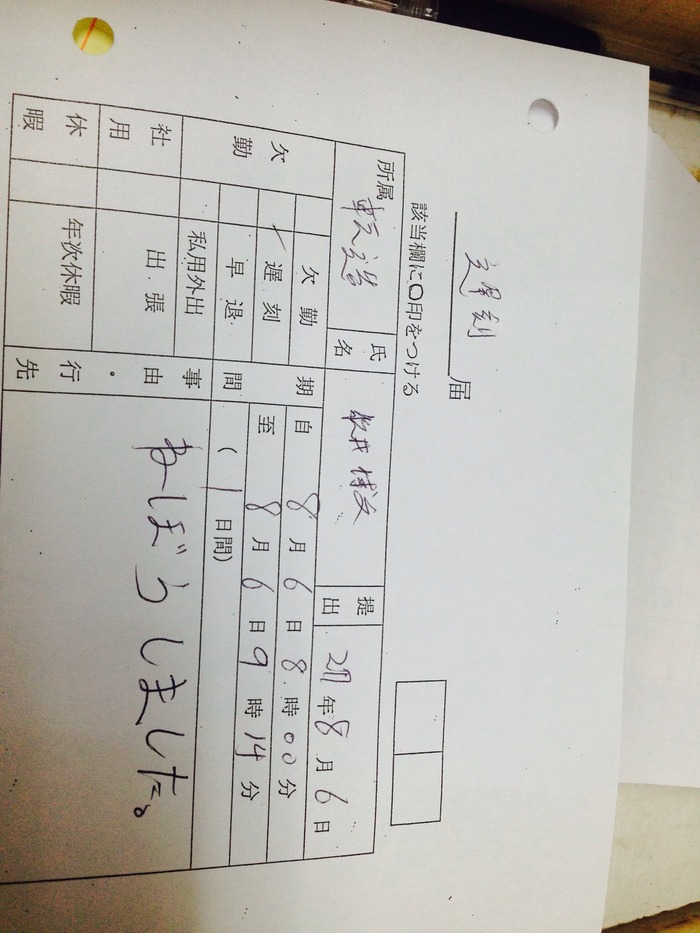 遅刻届
該当欄に〇印をつける
所属 氏名 牧井博文 提出 27年8月6日
欠勤 欠勤 期間 自 8月6日8時00分
遅刻 至 8月6日9時14分
早退 (1日間)
私用外出 事由・行先 ねぼうしました。
社用 出張
休暇 年次休暇